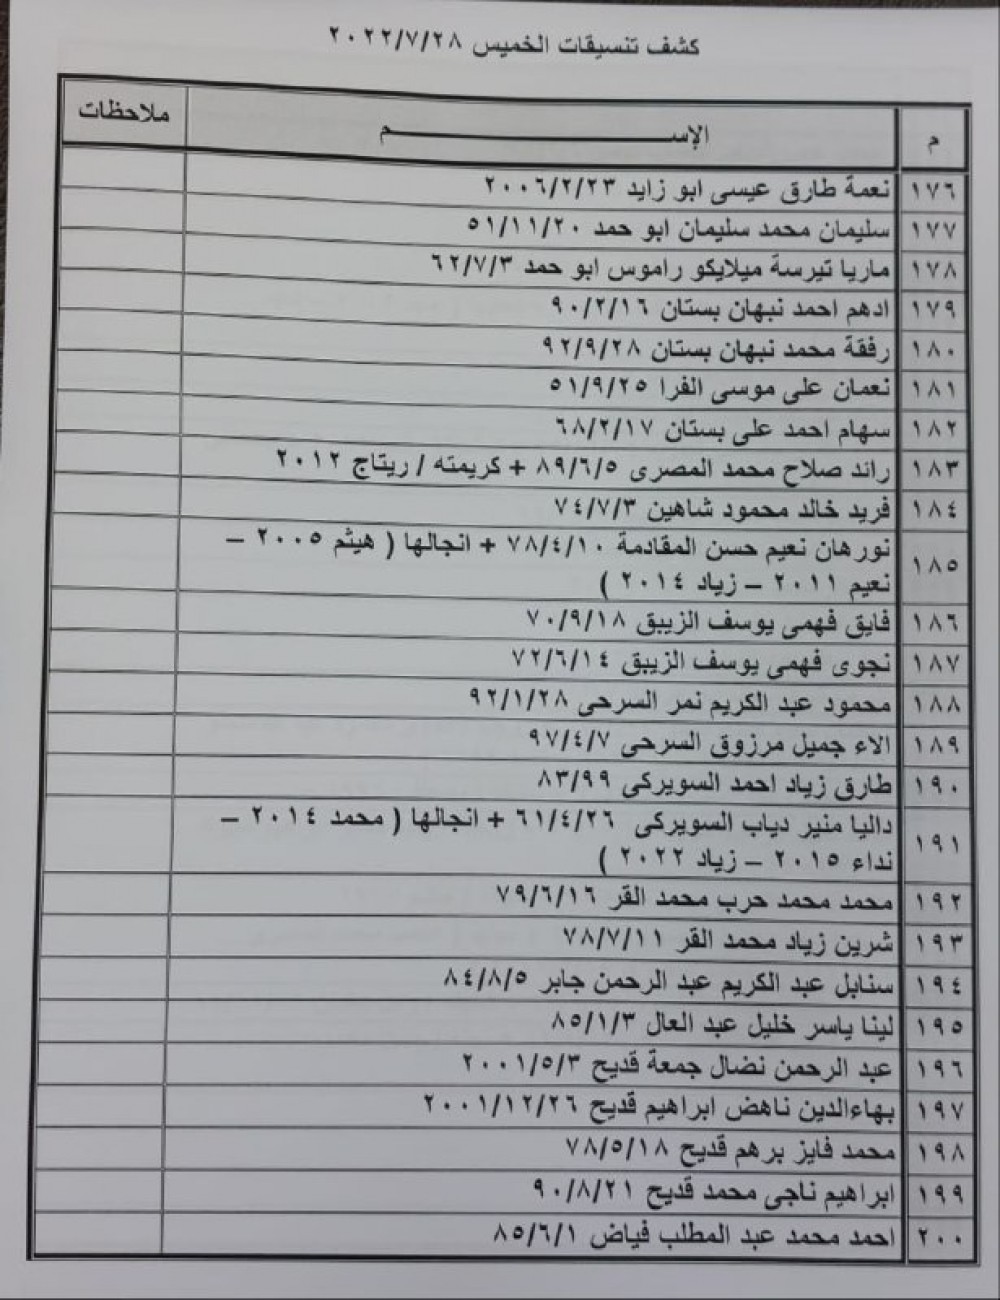 كشف تنسيقات الخميس ٢٠٢٢/٧/٢٨
م الإســــــــــم ملاحظات
١٧٦ نعمة طارق عيسى ابو زايد ٢٠٠٦/٢/٢٣
١٧٧ سليمان محمد سليمان ابو حمد ٥١/١١/٢٠
١٧٨ ماريا تيرسة ميلايكو راموس ابو حمد ٦٢/٧/٣
١٧٩ ادهم احمد نبهان بستان ٩٠/٢/١٦
١٨٠ رفقة محمد نبهان بستان ٩٢/٩/٢٨
١٨١ نعمان على موسى الفرا ٥١/٩/٢٥
١٨٢ سهام احمد على بستان ٦٨/٢/١٧
١٨٣ رائد صلاح محمد المصرى ٨٩/٦/٥ + كريمته / ريتاج ٢٠١٢
١٨٤ فريد خالد محمود شاهين ٧٤/٧/٣
١٨٥ نورهان نعيم حسن المقادمة ٧٨/٤/١٠ + انجالها ( هيثم ٢٠٠٥ –
نعيم ٢٠١١ – زياد ٢٠١٤ )
١٨٦ فايق فهمى يوسف الزيبق ٧٠/٩/١٨
١٨٧ نجوى فهمى يوسف الزيبق ٧٢/٦/١٤
١٨٨ محمود عبد الكريم نمر السرحى ٩٢/١/٢٨
١٨٩ الاء جميل مرزوق السرحى ٩٧/٤/٧
١٩٠ طارق زياد احمد السويركى ٨٣/٩٩
١٩١ داليا منير دياب السويركى ٦١/٤/٢٦ + انجالها ( محمد ٢٠١٤ –
نداء ٢٠١٥ – زياد ٢٠٢٢ )
١٩٢ محمد محمد حرب محمد القر ٧٩/٦/١٦
١٩٣ شرين زياد محمد القر ٧٨/٧/١١
١٩٤ سنابل عبد الكريم عبد الرحمن جابر ٨٤/٨/٥
١٩٥ لينا ياسر خليل عبد العال ٨٥/١/٣
١٩٦ عبد الرحمن نضال جمعة قديح ٢٠٠١/٥/٣
١٩٧ بهاءالدين ناهض ابراهيم قديح ٢٠٠١/١٢/٢٦
١٩٨ محمد فايز برهم قديح ٧٨/٥/١٨
١٩٩ ابراهيم ناجى محمد قديح ٩٠/٨/٢١
٢٠٠ احمد محمد عبد المطلب فياض ٨٥/٦/١